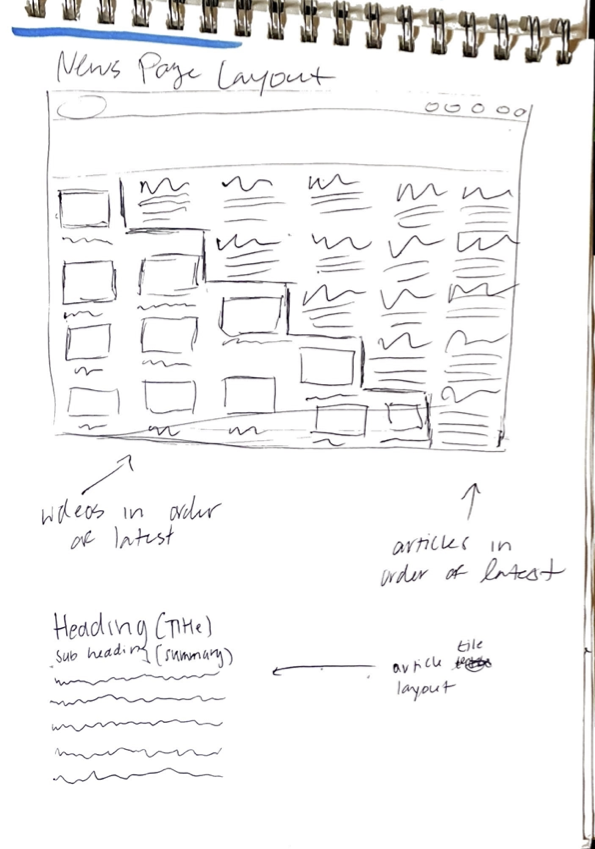 News Page Layout
videos in order
of latest
articles in
order of latest
Heading (Title)
sub heading (summary)
article tile
layout